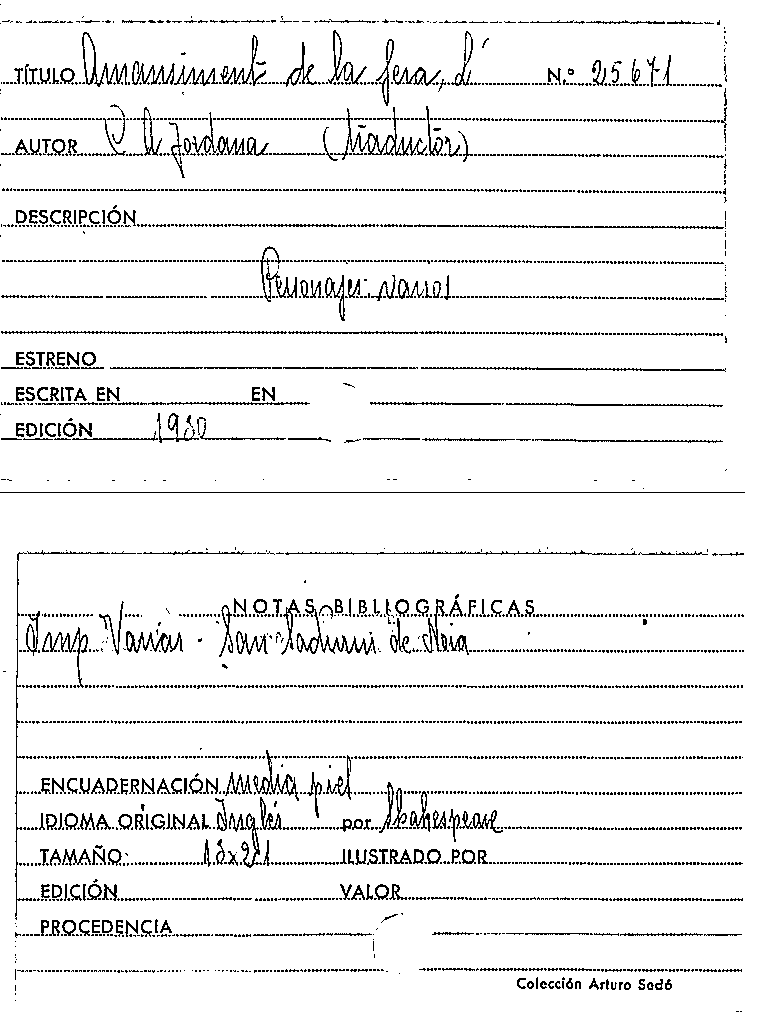 TÍTULO Amansiment de la fera, L' N.º 25671
AUTOR C A Jordana (traductor)
DESCRIPCIÓN
Personajes: varios
ESTRENO
ESCRITA EN EN
EDICIÓN 1930
NOTAS BIBLIOGRÁFICAS
Imp Varias - San Sadurni de Noia
ENCUADERNACIÓN media piel
IDIOMA ORIGINAL Inglés por Shakespeare
TAMAÑO: ILUSTRADO POR
EDICIÓN VALOR
PROCEDENCIA
Colección Arturo Sedó